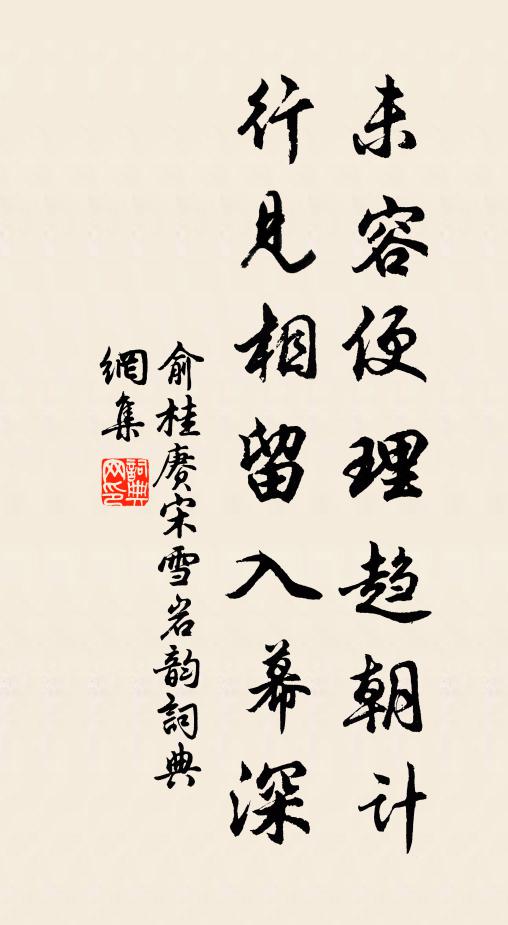 未容便理趋朝计
行见相留入幕深
俞桂赓宋雪岩韵词典
網集
詞典
网印